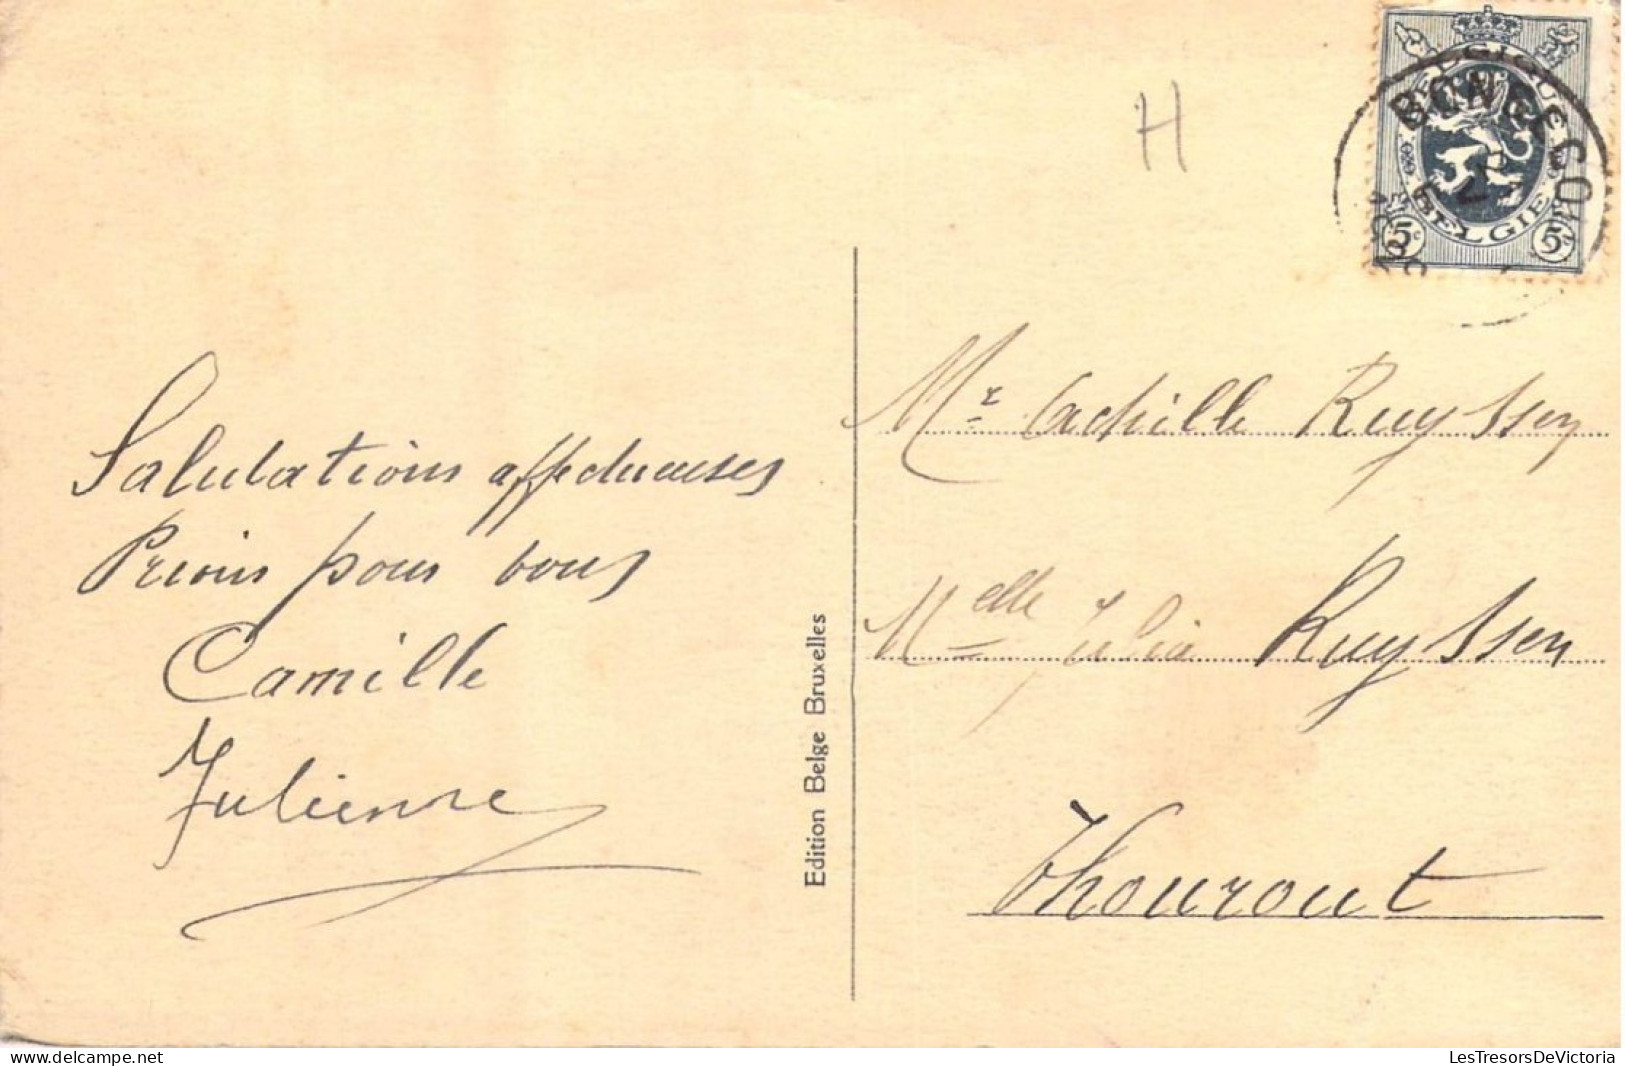 H
BELGIQUE
BELGIE
5c 5c
Salutations affectueuses
Prions pour vous
Camille
Julienne
Edition Belge Bruxelles
Mr Achille Ruyssen
Melle Julia Ruyssen
Thourout
www.delcampe.net
LesTresorsDeVictoria